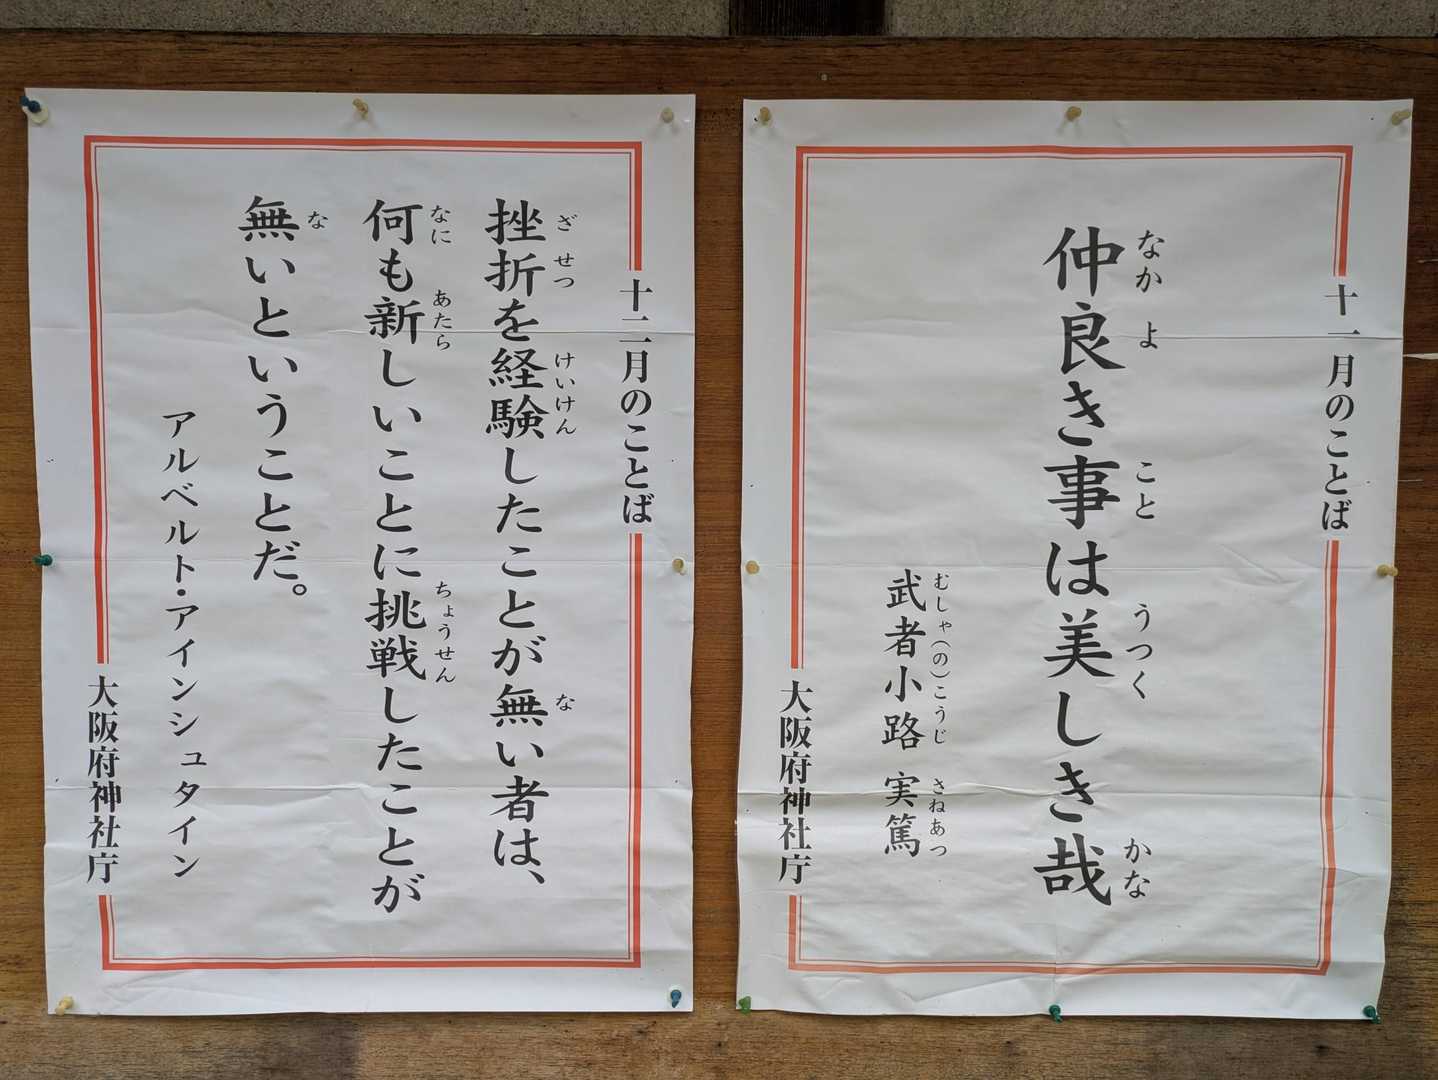 十一月のことば
仲良き事は美しき哉
なかよ こと うつく かな
武者小路 実篤
むしゃ(の)こうじ さねあつ
大阪府神社庁
十二月のことば
挫折を経験したことが無い者は、
ざせつ けいけん な
何も新しいことに挑戦したことが
なに あたら ちょうせん
無いということだ。
な
アルベルト・アインシュタイン
大阪府神社庁